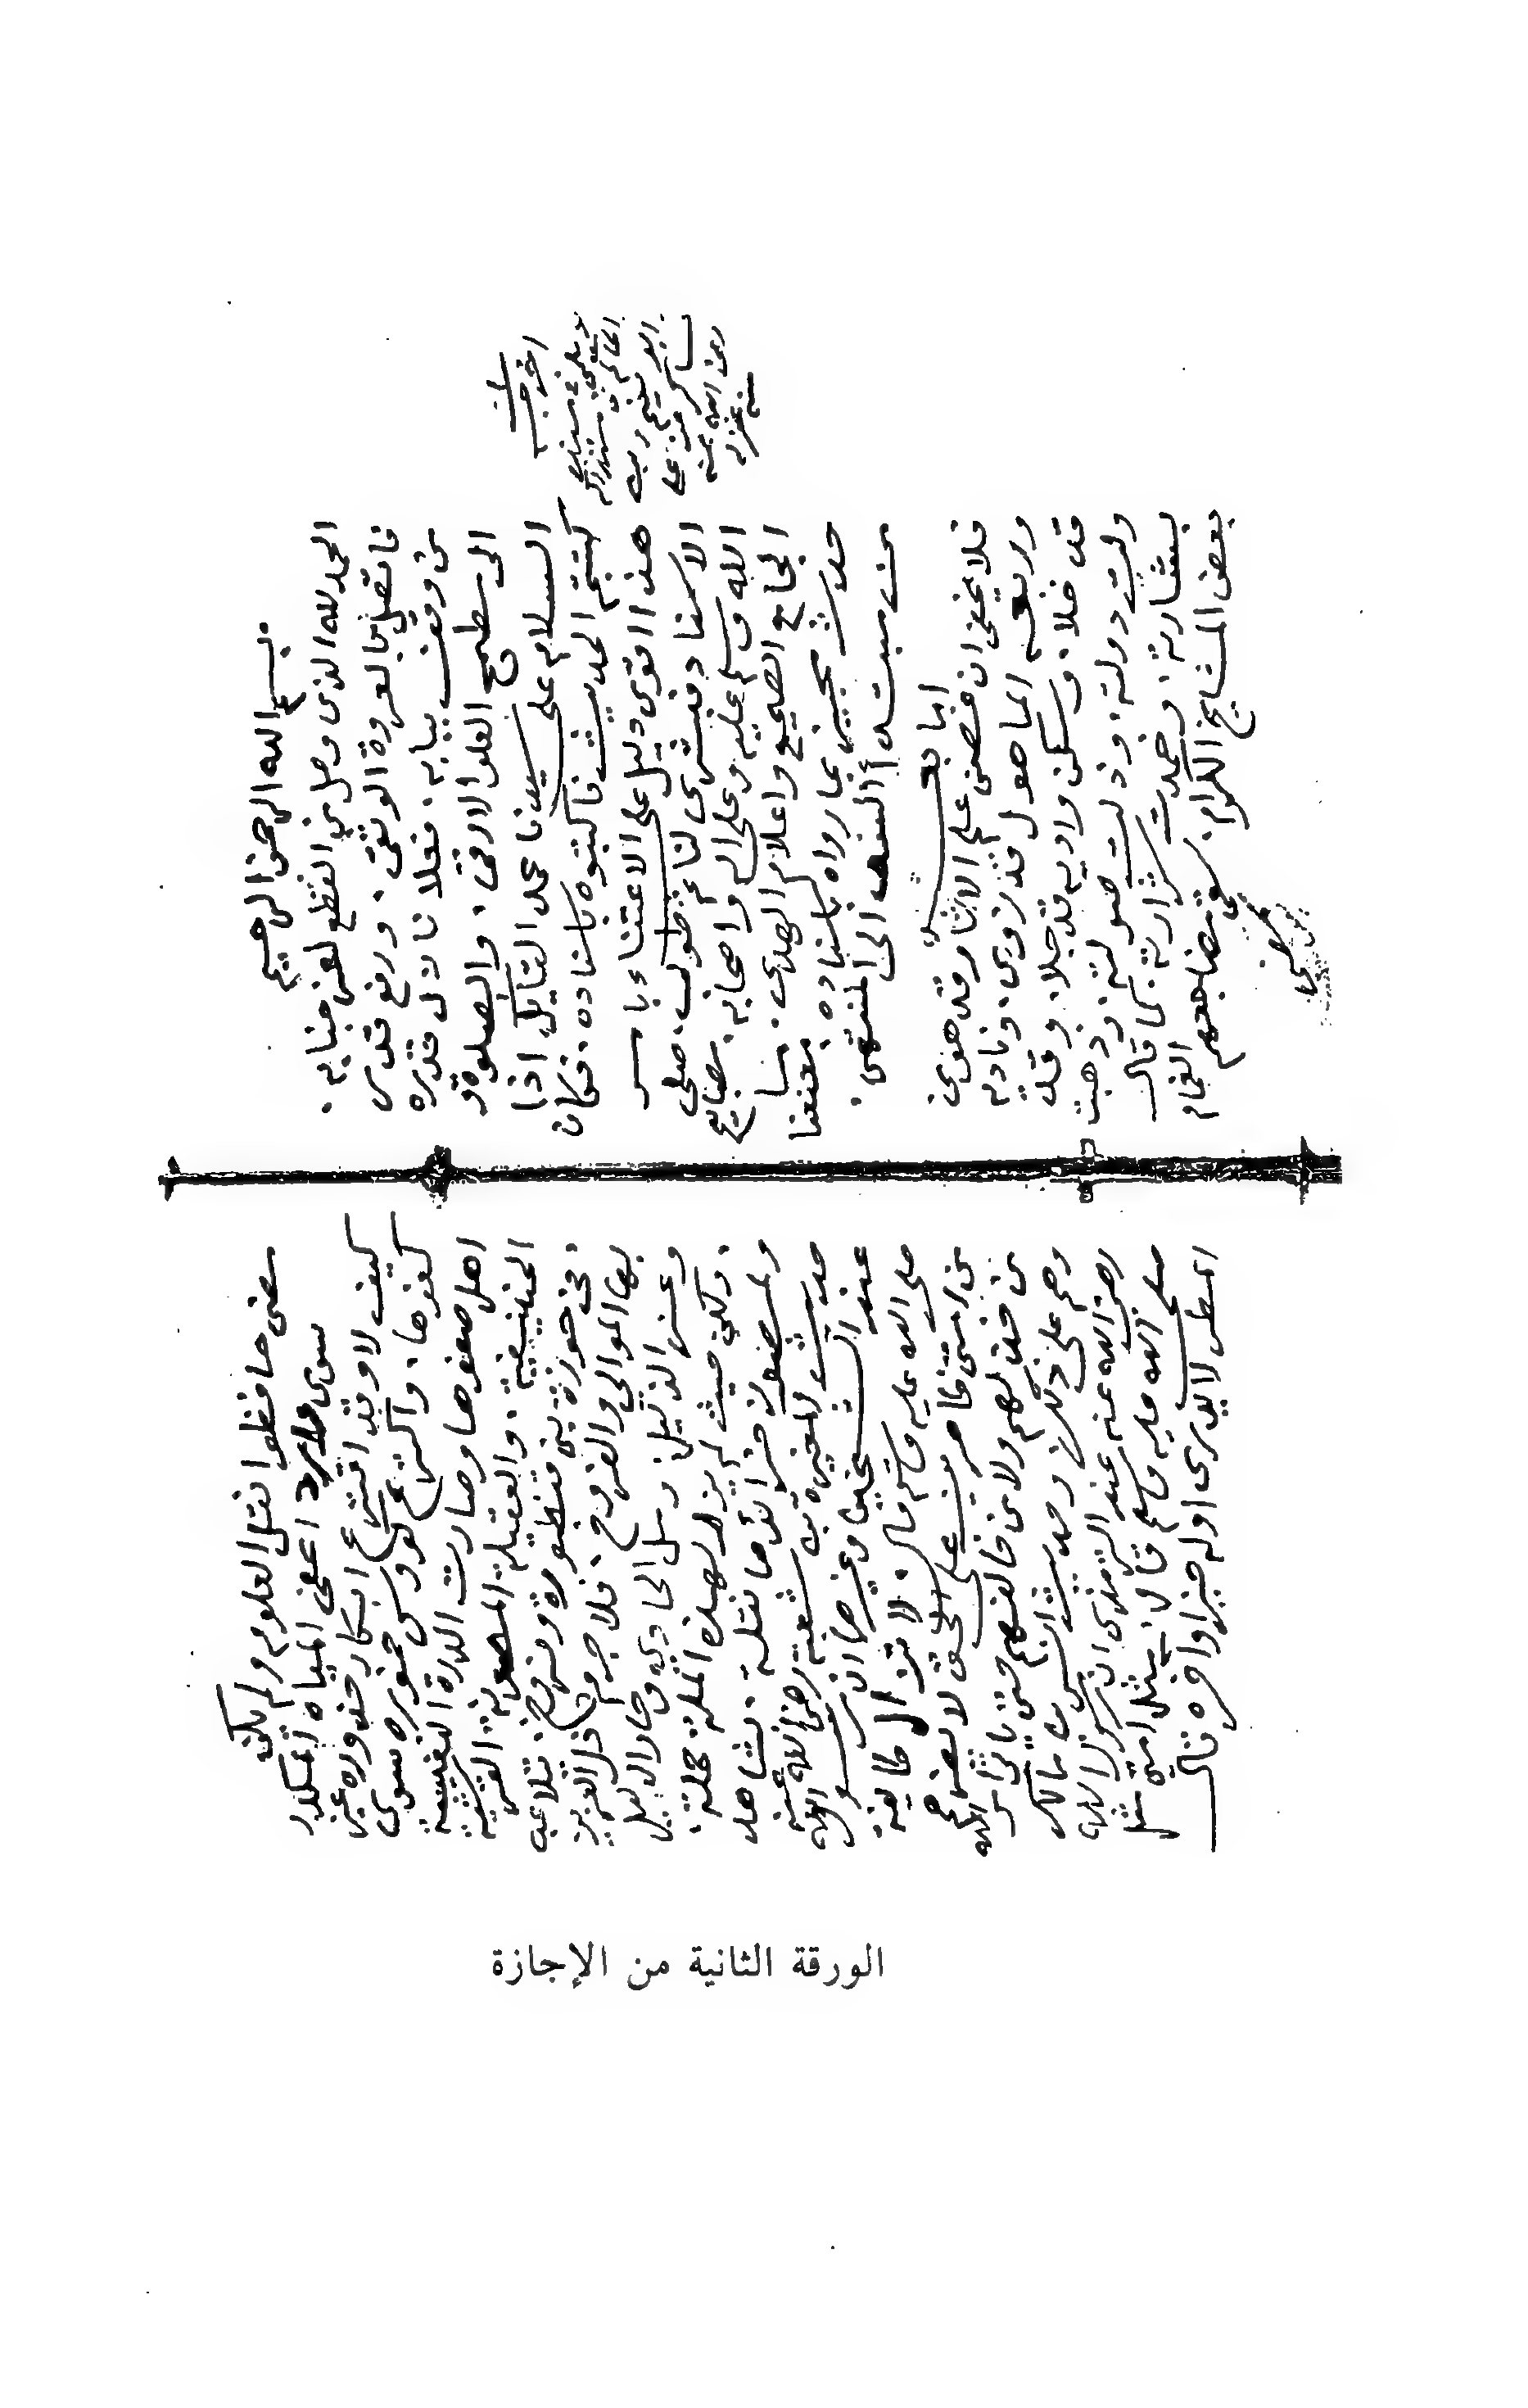 بسم الله الرحمن الرحيم
الحمد لله الذى وصل من انقطع لعز جنابه .
فاتصل بالعروة الوثقى . ورفع قدر
من وقف ببابه . فعلا نازل قدره
الى سطوح العلو الارقى . والصلوة و
السلام على سيدنا محمد القايل اذا
كتبتم الحديث فاكتبوه باسناده . فكان
هذا اقوى دليل على الاعتناء با
الاسناد فبشرى لنا ثم طوبى . صلى
الله وسلم عليه وعلى اله واصحابه .
الجامع الصحيح واعلام الهدى .
حدث مجيز بما رواه باسناده معنعنا
من مبتدأ النص الى المنتهى .
اما بعد
فلا يخفى ان غصن علم الاثار قد هوى
وربعه الماهول قد زوى . وناديه
قد خلا . وسكن واديه قد جلا . وقد
ولت دولته . وذلت صولته . وذهبت
بشارته . وخمدت شرارته كما قال
بعض المشايخ الكرام . سقى مضاجعهم الغمام
اخرجه
الحاكم فى
ابو نعيم
عساكر عن على
رضى الله عنه
مضى حافظوا نقل العلوم ولم يكن
سوى اعفى المياه المكدر
كيف لا وقد اقترع ابكار خدوره غير
كفوها . واكترع كؤوس خموره سوى
اهل صفوها وصارت الدرة النفيسة
الحنيفية . والعقيلة المصونة القرشية
فى حوزة بنى قنطورة وفروخ . تلاعب
بها الموالى والفروخ . فلا جرم ذل العزيز
وعز الذليل . وسل الحادى وحار الدليل
ولكن حيث لم يزل لهذه الملة حملة .
ولمرضعة خزائنها نقلة . شاهد
حديث المغيرة بن شعبة رضى الله عنه
عند الشيخين وغيرهما ان رسول الله
صلى الله عليه وسلم قال . لا تزال طايفة
من امتى ظاهرين على الحق لا يضرهم
من خذلهم ولا من خالفهم حتى ياتى امر الله
وهم على ذلك . وحديث انس بن مالك
رضى الله عنه عند الترمذى ان رسول الله
صلى الله عليه وسلم قال . مثل امتى مثل
المطر لا يدرى اوله خير او اخره قال
الورقة الثانية من الإجازة